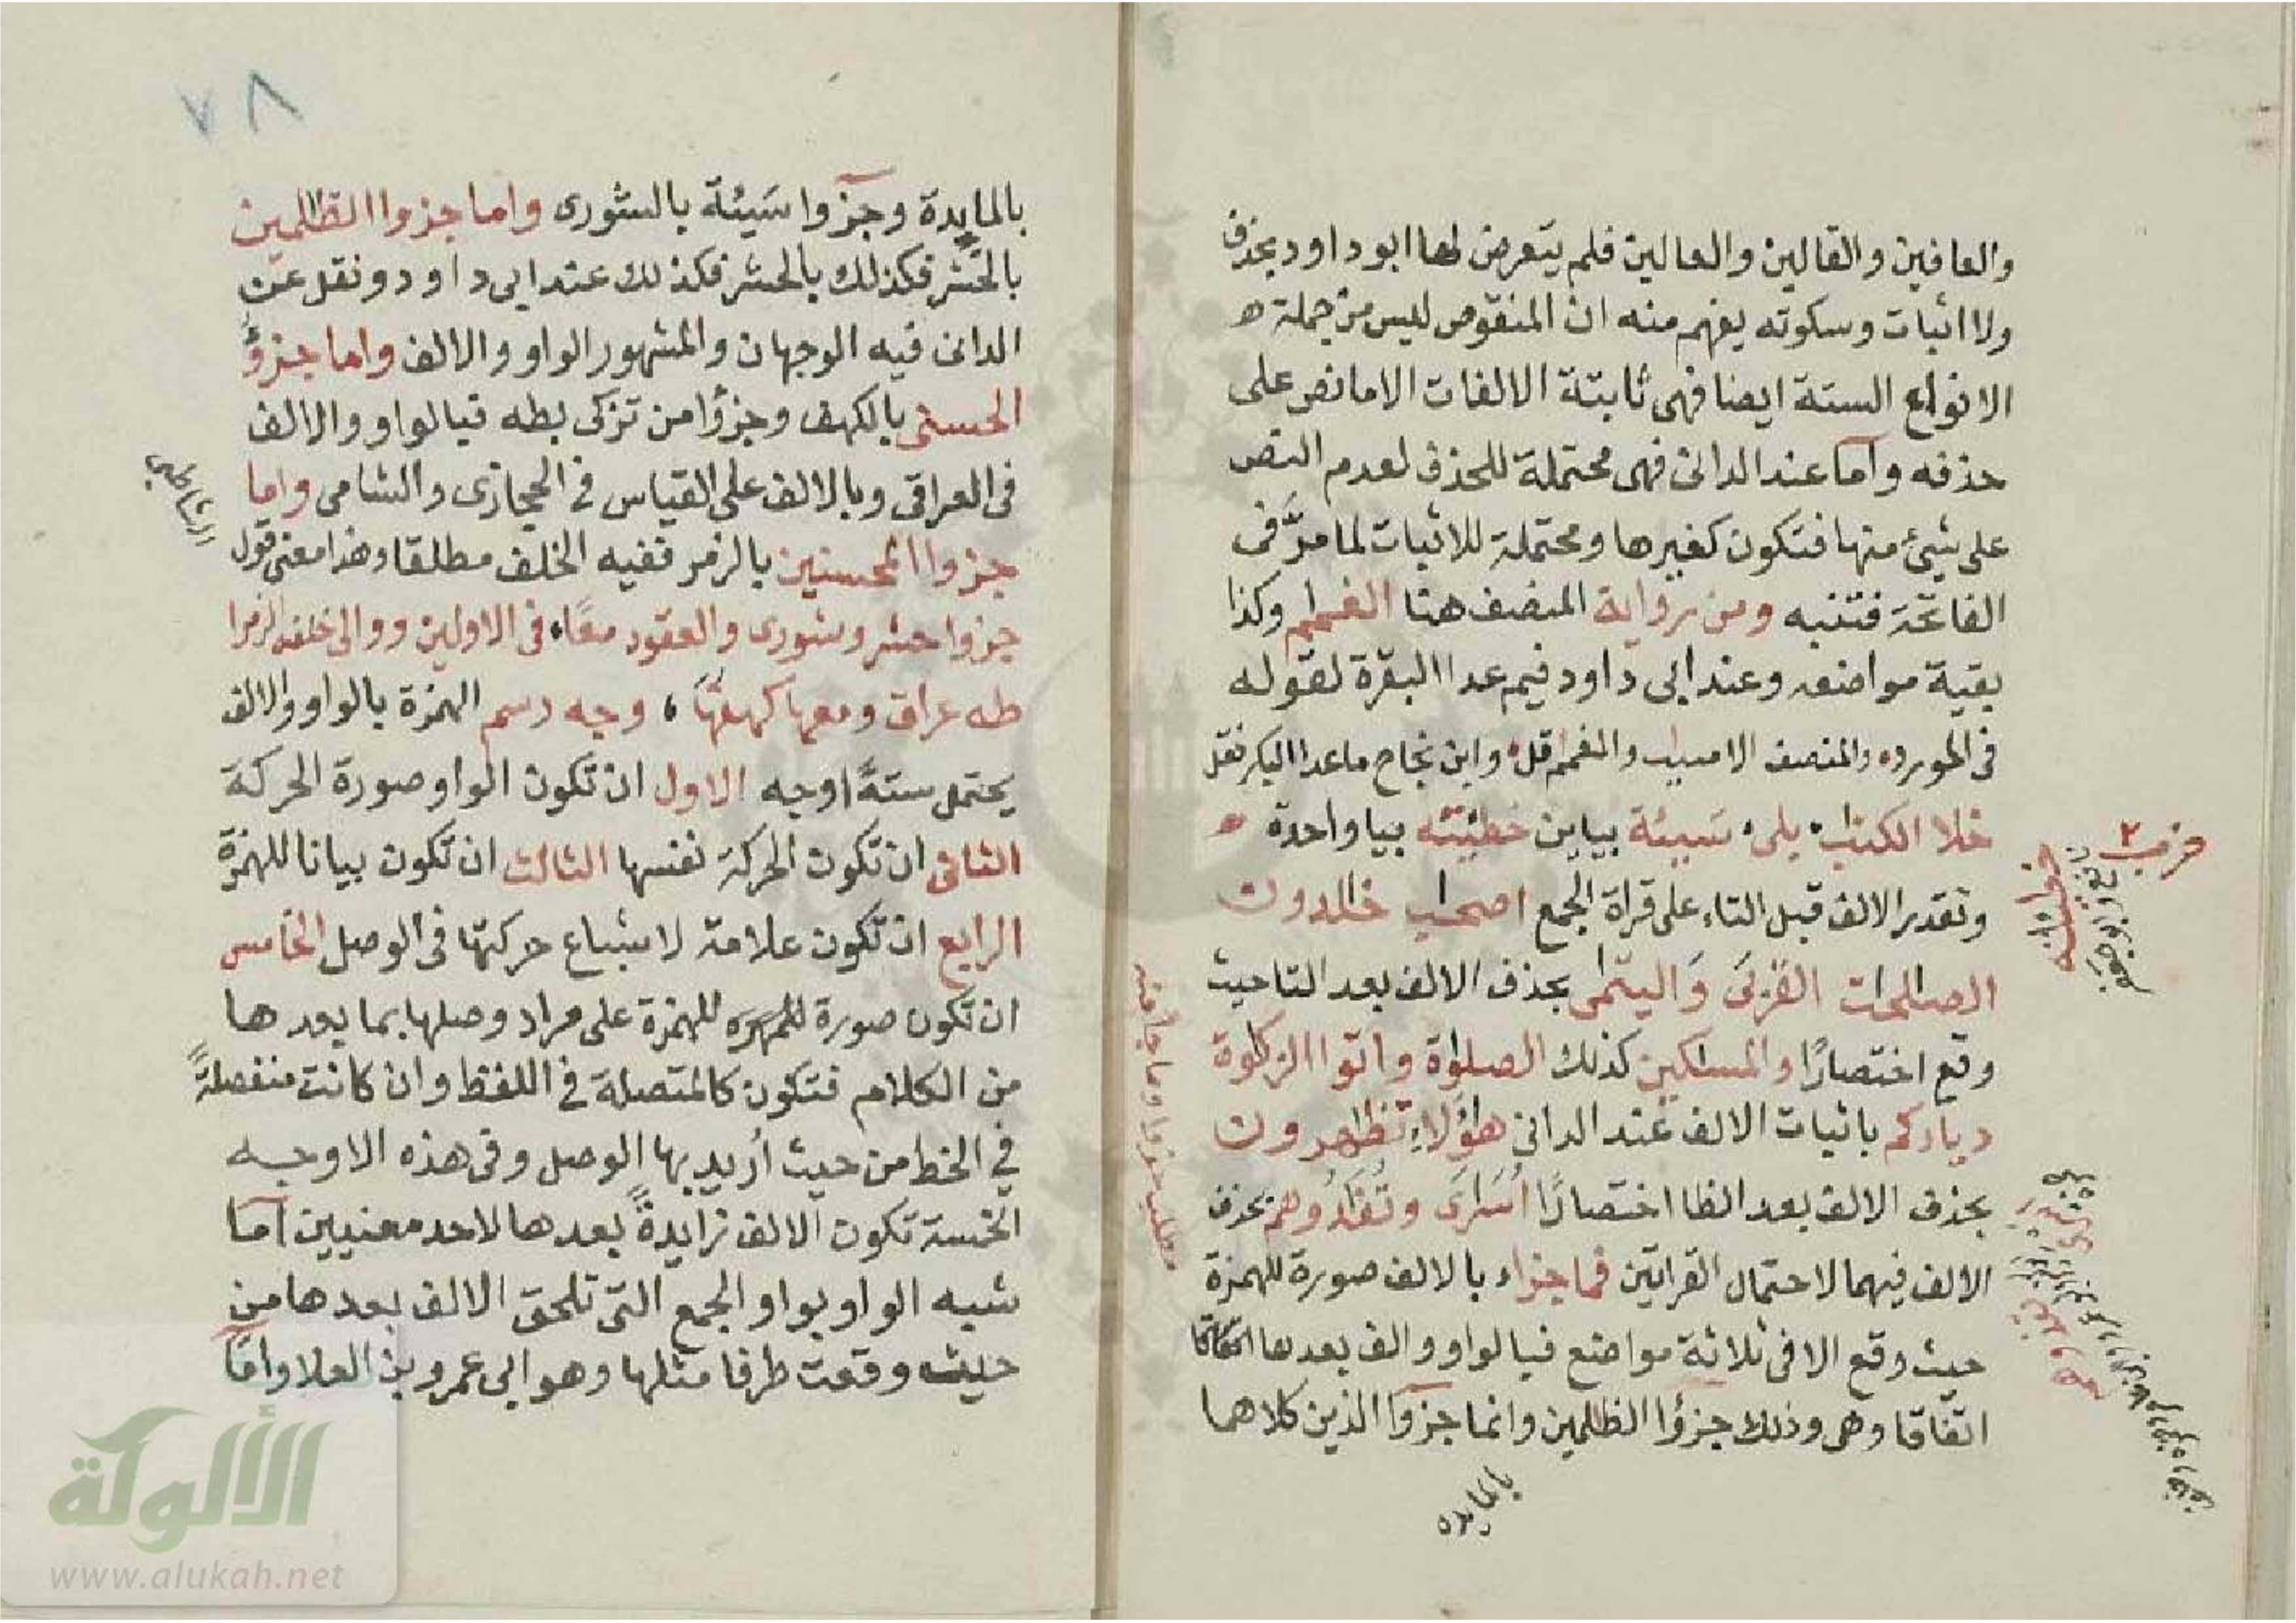 والعافين والقالين والعالين فلم يتعرض لها ابو داود بحذف
ولا اثبات وسكوته يفهم منه ان المنقوص ليس من جملة ه
الانواع الستة ايضا فهى ثابتة الالفات الا ما نص على
حذفه واما عند الدانى فهى محتملة للحذف لعدم النص
على شئ منها فتكون كغيرها ومحتملة للاثبات لما مرَّ فى
الفاتحة فتنبه ومن رواية المنصف هنا الغمام وكذا
بقية مواضعه وعند ابى داود فيم عدا البقرة لقوله
فى المورد والمنصف الاسباب والغمم قل وابن نجاح ما عدا البكر نقل
خلا الكتب بلى سَيئة بياين خطيئته بيا واحدة
وتقدير الالف قبل التاء على قراة الجمع اصحب خلدون
الصلحت القُرْبَى وَاليتمى بحذف الالف بعد التا حيث
وقع اختصارًا والمسكين كذلك الصلوة واتوا الزكوة
دياركم باثبات الالف عند الدانى هؤلاءِ تظهرون
بحذف الالف بعد الظا اختصارًا أسَرى وتُفَدُوهم بحذف
الالف فيهما لاحتمال القراتين فما جزاء بالالف صورة للهمزة
حيث وقع الا فى ثلاثة مواضع فبالواو والف بعدها
اتفاقا وهى وذلك جزؤا الظلمين وانما جزؤا الذين كلاهما
بالمايده
حزب ٢
خطيئته
نافع وابو جعفر
مطلب جزوا وما جا منه
٧٨
بالمايدة وجزؤا سَيئة بالشورى واما جزوا الظلمين
بالحشر فكذلك بالحشر فكذلك عند ابى داود ونقل عن
الدانى فيه الوجهان والمشهور الواو والالف واما جزؤُ
الحسنى بالكهف وجزؤا من تزكى بطه فبالواو والالف
فى العراقى وبالالف على القياس فى الحجازى والشامى واما
جزوا المحسنين بالزمر ففيه الخلف مطلقا وهذا معنى قول
الشاطبي
جزوا حشر وشورى والعقود معًا، فى الاولين ووالى خلفه الزمرا
طه عراق ومعها كهفهَا، وجه رسم الهمزة بالواو والالف
يحتمل ستةً اوجه الاول ان تكون الواو صورة الحركة
الثانى ان تكون الحركة نفسها الثالث ان تكون بيانا للهمزة
الرابع ان تكون علامة لاشباع حركتها فى الوصل الخامس
ان تكون صورة للهمزه للهمزة على مراد وصلها بما بعدها
من الكلام فتكون كالمتصلة فى اللفظ وان كانت منفصلةً
فى الخط من حيث أريد بها الوصل وفى هذه الاوجه
الخمسة تكون الالف زايدةً بعدها لاحد معنيين اما
شبه الواو بواو الجمع التى تلحق الالف بعدها من
حيث وقعت طرفا مثلها وهو ابى عمرو بن العلا واما
الألوكة
www.alukah.net